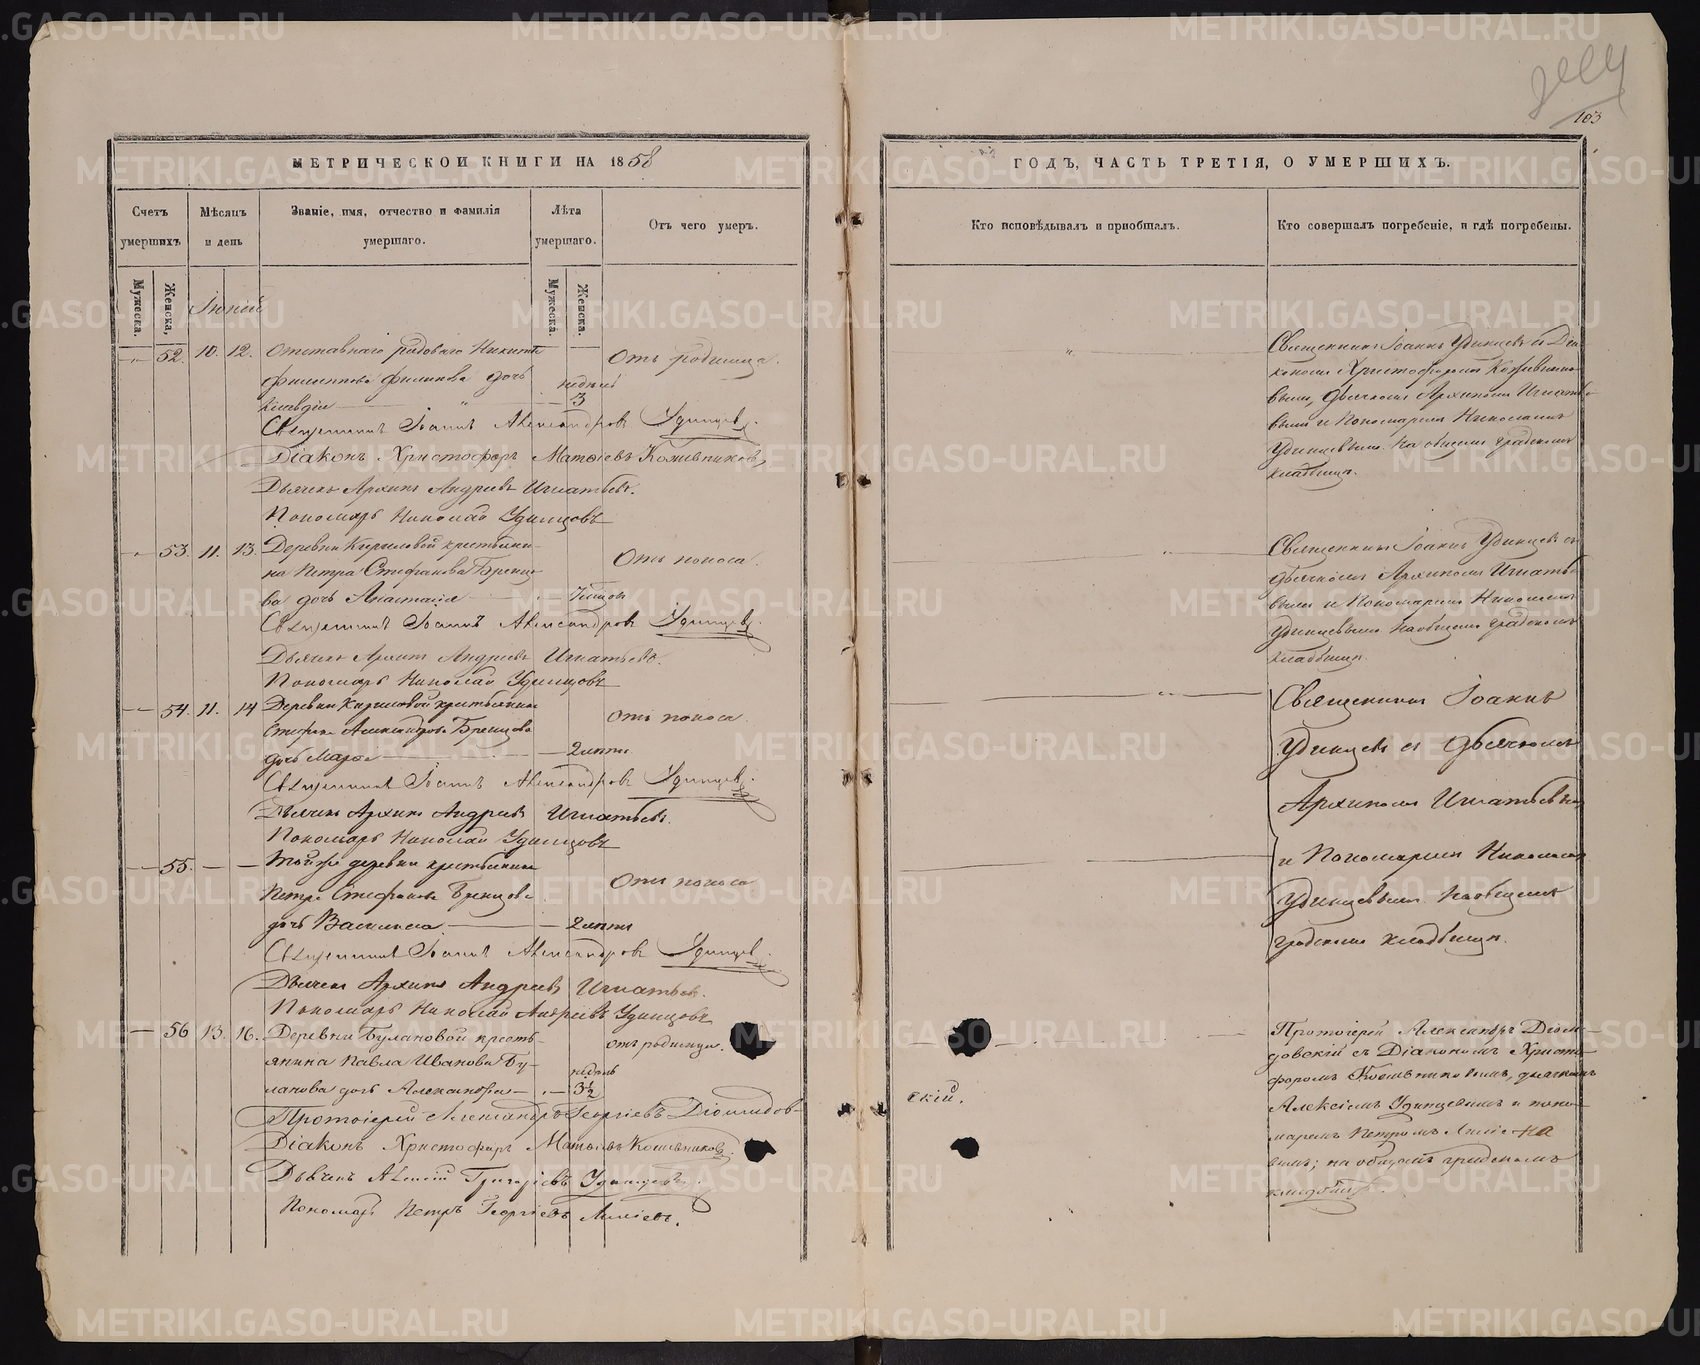 103
МЕТРИЧЕСКОЙ КНИГИ НА 1858
ГОДЪ, ЧАСТЬ ТРЕТІЯ, О УМЕРШИХЪ.
Счетъ умершихъ
Мѣсяцъ и день
Званіе, имя, отчество и фамилія умершаго.
Лѣта умершаго.
Отъ чего умеръ.
Кто исповѣдывалъ и пріобщалъ.
Кто совершалъ погребеніе, и гдѣ погребены.
Мужеска.
Женска.
Мужеска.
Женска.
Іюній
52. 10. 12. Отставнаго рядоваго Никиты
Филиппова дочь
Клавдія
недѣль
3
Отъ родимца.
Священникъ Іоаннъ Александровъ Удинцевъ.
Діаконъ Христофоръ Матѳіевъ Кожевниковъ,
Дьячекъ Архипъ Андреевъ Игнатьевъ.
Пономарь Николай Удинцовъ
Священникъ Іоаннъ Удинцевъ съ Діа
кономъ Христофоромъ Кожевнико
вымъ, дьячкомъ Архипомъ Игнатье
вымъ и Пономаремъ Николаемъ
Удинцевымъ на общемъ градскомъ
кладбищѣ.
53. 11. 13. Деревни Кириловой крестьяни
на Петра Стефанова Бренцо
ва дочь Анастасія
Отъ поноса.
Священникъ Іоаннъ Александровъ Удинцевъ.
Дьячекъ Архипъ Андреевъ Игнатьевъ.
Пономарь Николай Удинцовъ
Священникъ Іоаннъ Удинцевъ съ
дьячкомъ Архипомъ Игнатье
вымъ и Пономаремъ Николаемъ
Удинцевымъ на общемъ градскомъ
кладбищѣ.
54. 11. 14 Деревни Кириловой крестьянина
Стефана Александрова Бренцова
дочь Марѳа
2 лѣтъ
Отъ поноса.
Священникъ Іоаннъ Александровъ Удинцевъ.
Дьячекъ Архипъ Андреевъ Игнатьевъ.
Пономарь Николай Удинцовъ
Священникъ Іоаннъ
Удинцевъ съ дьячкомъ
Архипомъ Игнатьевымъ
и Пономаремъ Николаемъ
Удинцевымъ на общемъ
градскомъ кладбищѣ.
55. Той же деревни крестьянина
Петра Стефанова Бренцова
дочь Василиса
2 лѣтъ
Отъ поноса
Священникъ Іоаннъ Александровъ Удинцевъ.
Дьячекъ Архипъ Андреевъ Игнатьевъ.
Пономарь Николай Андреевъ Удинцовъ
56 13. 16. Деревни Булановой кресть-
янина Павла Иванова Бу-
ланова дочь Александра
недѣль
3½
отъ родимца.
Протоіерей Александръ Георгіевъ Діомидов-
скій.
Діаконъ Христофоръ Матѳіевъ Кожевниковъ.
Дьячекъ Алексій Григоріевъ Удинцевъ.
Пономарь Петръ Георгіевъ
Протоіерей Александръ Діоми-
довскій съ Діакономъ Христо-
форомъ Кожевниковымъ, дьячкомъ
Алексіемъ Удинцевымъ и поно-
маремъ Петромъ
вымъ; на общемъ градскомъ
кладбищѣ.
METRIKI.GASO-URAL.RU